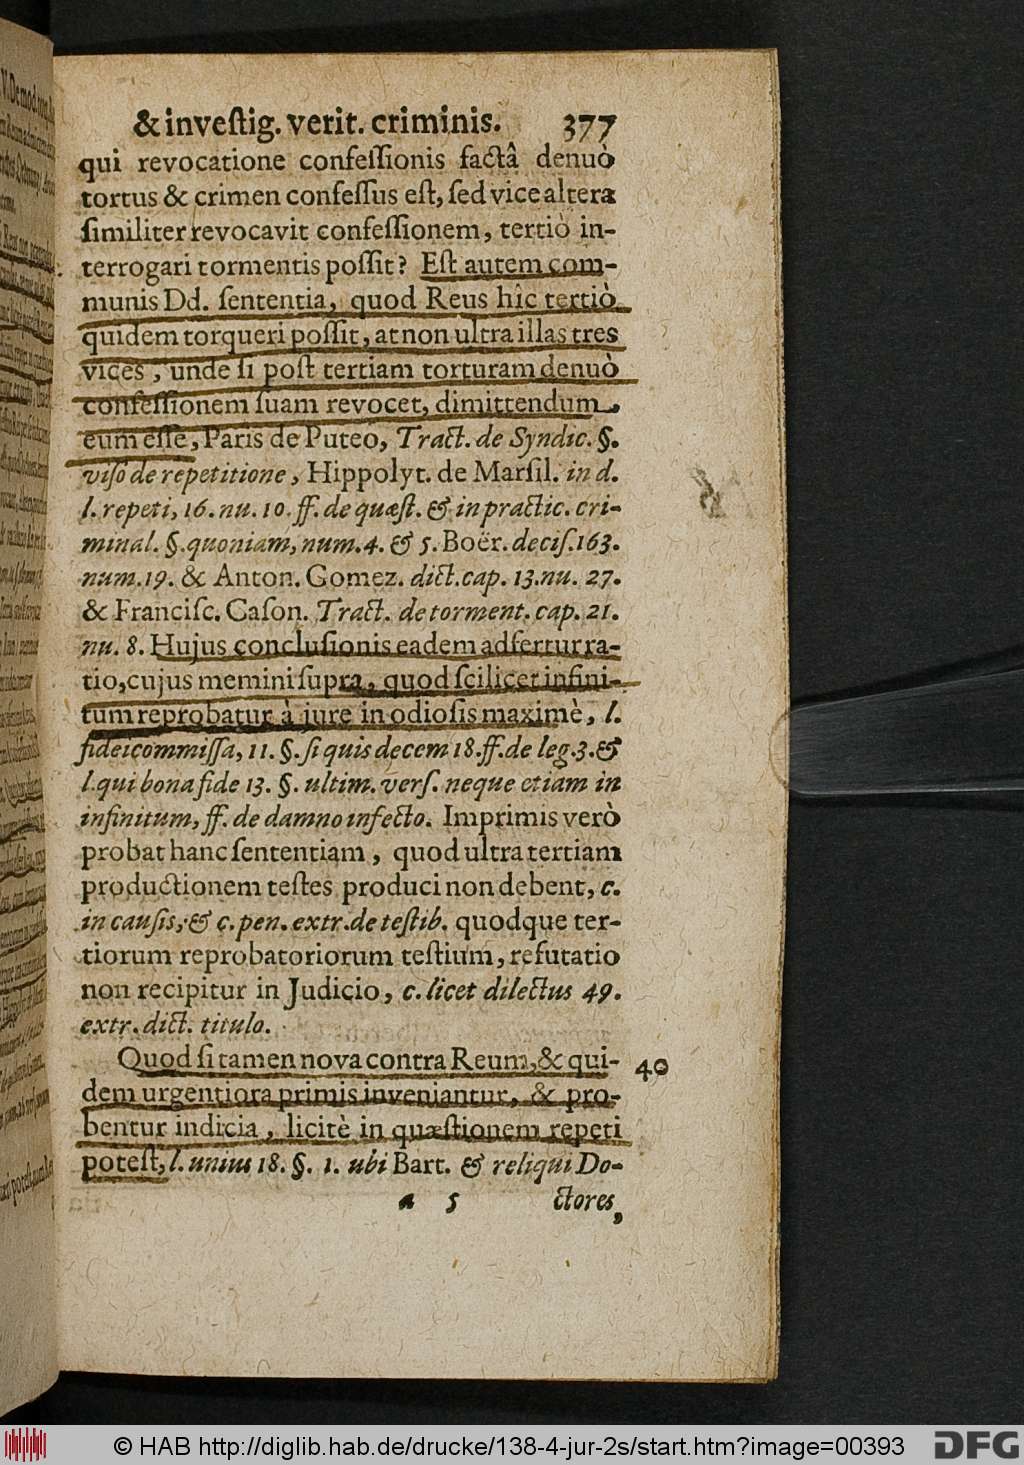 & inveſtig. verit. criminis. 377
qui revocatione confeſſionis factâ denuò
tortus & crimen confeſſus eſt, ſed vice altera
ſimiliter revocavit confeſſionem, tertiò in-
terrogari tormentis poſſit? Eſt autem com-
munis Dd. ſententia, quod Reus hîc tertiò
quidem torqueri poſſit, at non ultra illas tres
vices, unde ſi poſt tertiam torturam denuò
confeſſionem ſuam revocet, dimittendum
eum eſſe, Paris de Puteo, Tract. de Syndic. §.
viſo de repetitione, Hippolyt. de Marſil. in d.
l. repeti, 16. nu. 10. ff. de quæſt. & in practic. cri-
minal. §. quoniam, num. 4. & 5. Boër. deciſ. 163.
num. 19. & Anton. Gomez. dict. cap. 13. nu. 27.
& Franciſc. Caſon. Tract. de torment. cap. 21.
nu. 8. Hujus concluſionis eadem adfertur ra-
tio, cujus memini ſupra, quod ſcilicet infini-
tum reprobatur à jure in odioſis maximè, l.
fideicommiſſa, 11. §. ſi quis decem 18. ff. de leg. 3. &
l. qui bona fide 13. §. ultim. verſ. neque etiam in
infinitum, ff. de damno infecto. Imprimis verò
probat hanc ſententiam, quod ultra tertiam
productionem teſtes produci non debent, c.
in cauſis, & c. pen. extr. de teſtib. quodque ter-
tiorum reprobatoriorum teſtium, refutatio
non recipitur in Judicio, c. licet dilectus 49.
extr. dict. titulo.
Quod ſi tamen nova contra Reum, & qui- 40
dem urgentiora primis inveniantur, & pro-
bentur indicia, licitè in quæſtionem repeti
poteſt, l. unius 18. §. 1. ubi Bart. & reliqui Do-
a 5 ctores,
© HAB http://diglib.hab.de/drucke/138-4-jur-2s/start.htm?image=00393
DFG